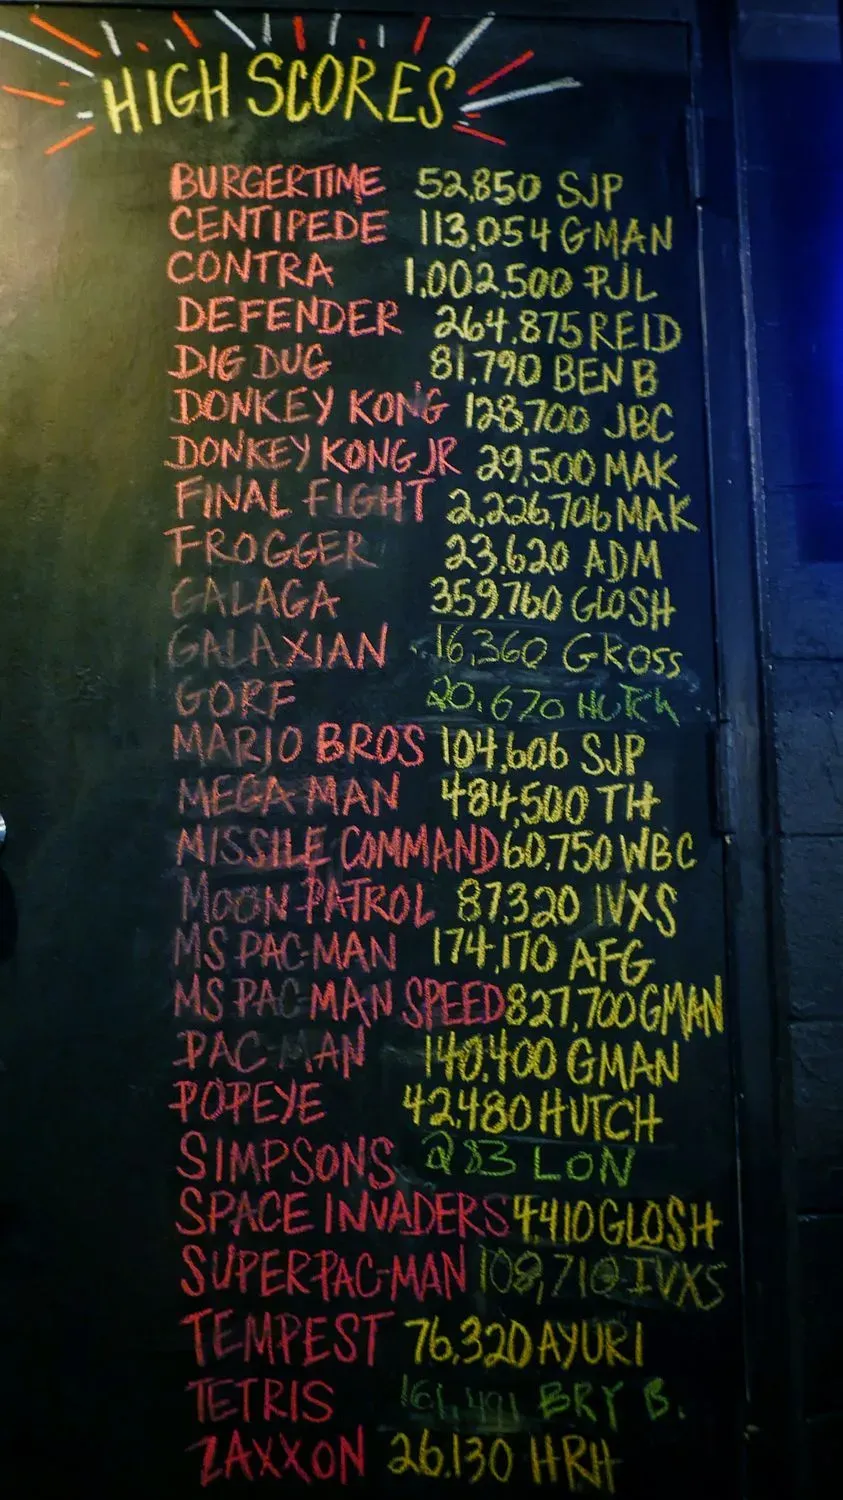 HIGH SCORES
BURGERTIME 52,850 SJP
CENTIPEDE 113,054 GMAN
CONTRA 1,002,500 PJL
DEFENDER 264,875 REID
DIG DUG 81,790 BEN B
DONKEY KONG 128,700 JBC
DONKEY KONG JR 29,500 MAK
FINAL FIGHT 2,226,706 MAK
FROGGER 23,620 ADM
GALAGA 359,760 GLOSH
GALAXIAN 16,360 GKOSS
GORF 20,670 HUTCH
MARIO BROS 104,606 SJP
MEGA MAN 484,500 TH
MISSILE COMMAND 60,750 WBC
MOON PATROL 87,320 IVXS
MS PAC-MAN 174,170 AFG
MS PAC MAN SPEED 827,700 GMAN
PAC-MAN 140,400 GMAN
POPEYE 42,480 HUTCH
SIMPSONS 283 LON
SPACE INVADERS 4,410 GLOSH
SUPER PAC-MAN 108,710 IVXS
TEMPEST 76,320 AYURI
TETRIS BRY B.
ZAXXON 26,130 HRH